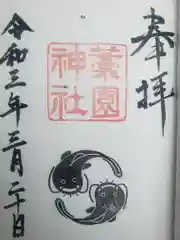 奉拝
葉園
神社
令和三年三月二十日